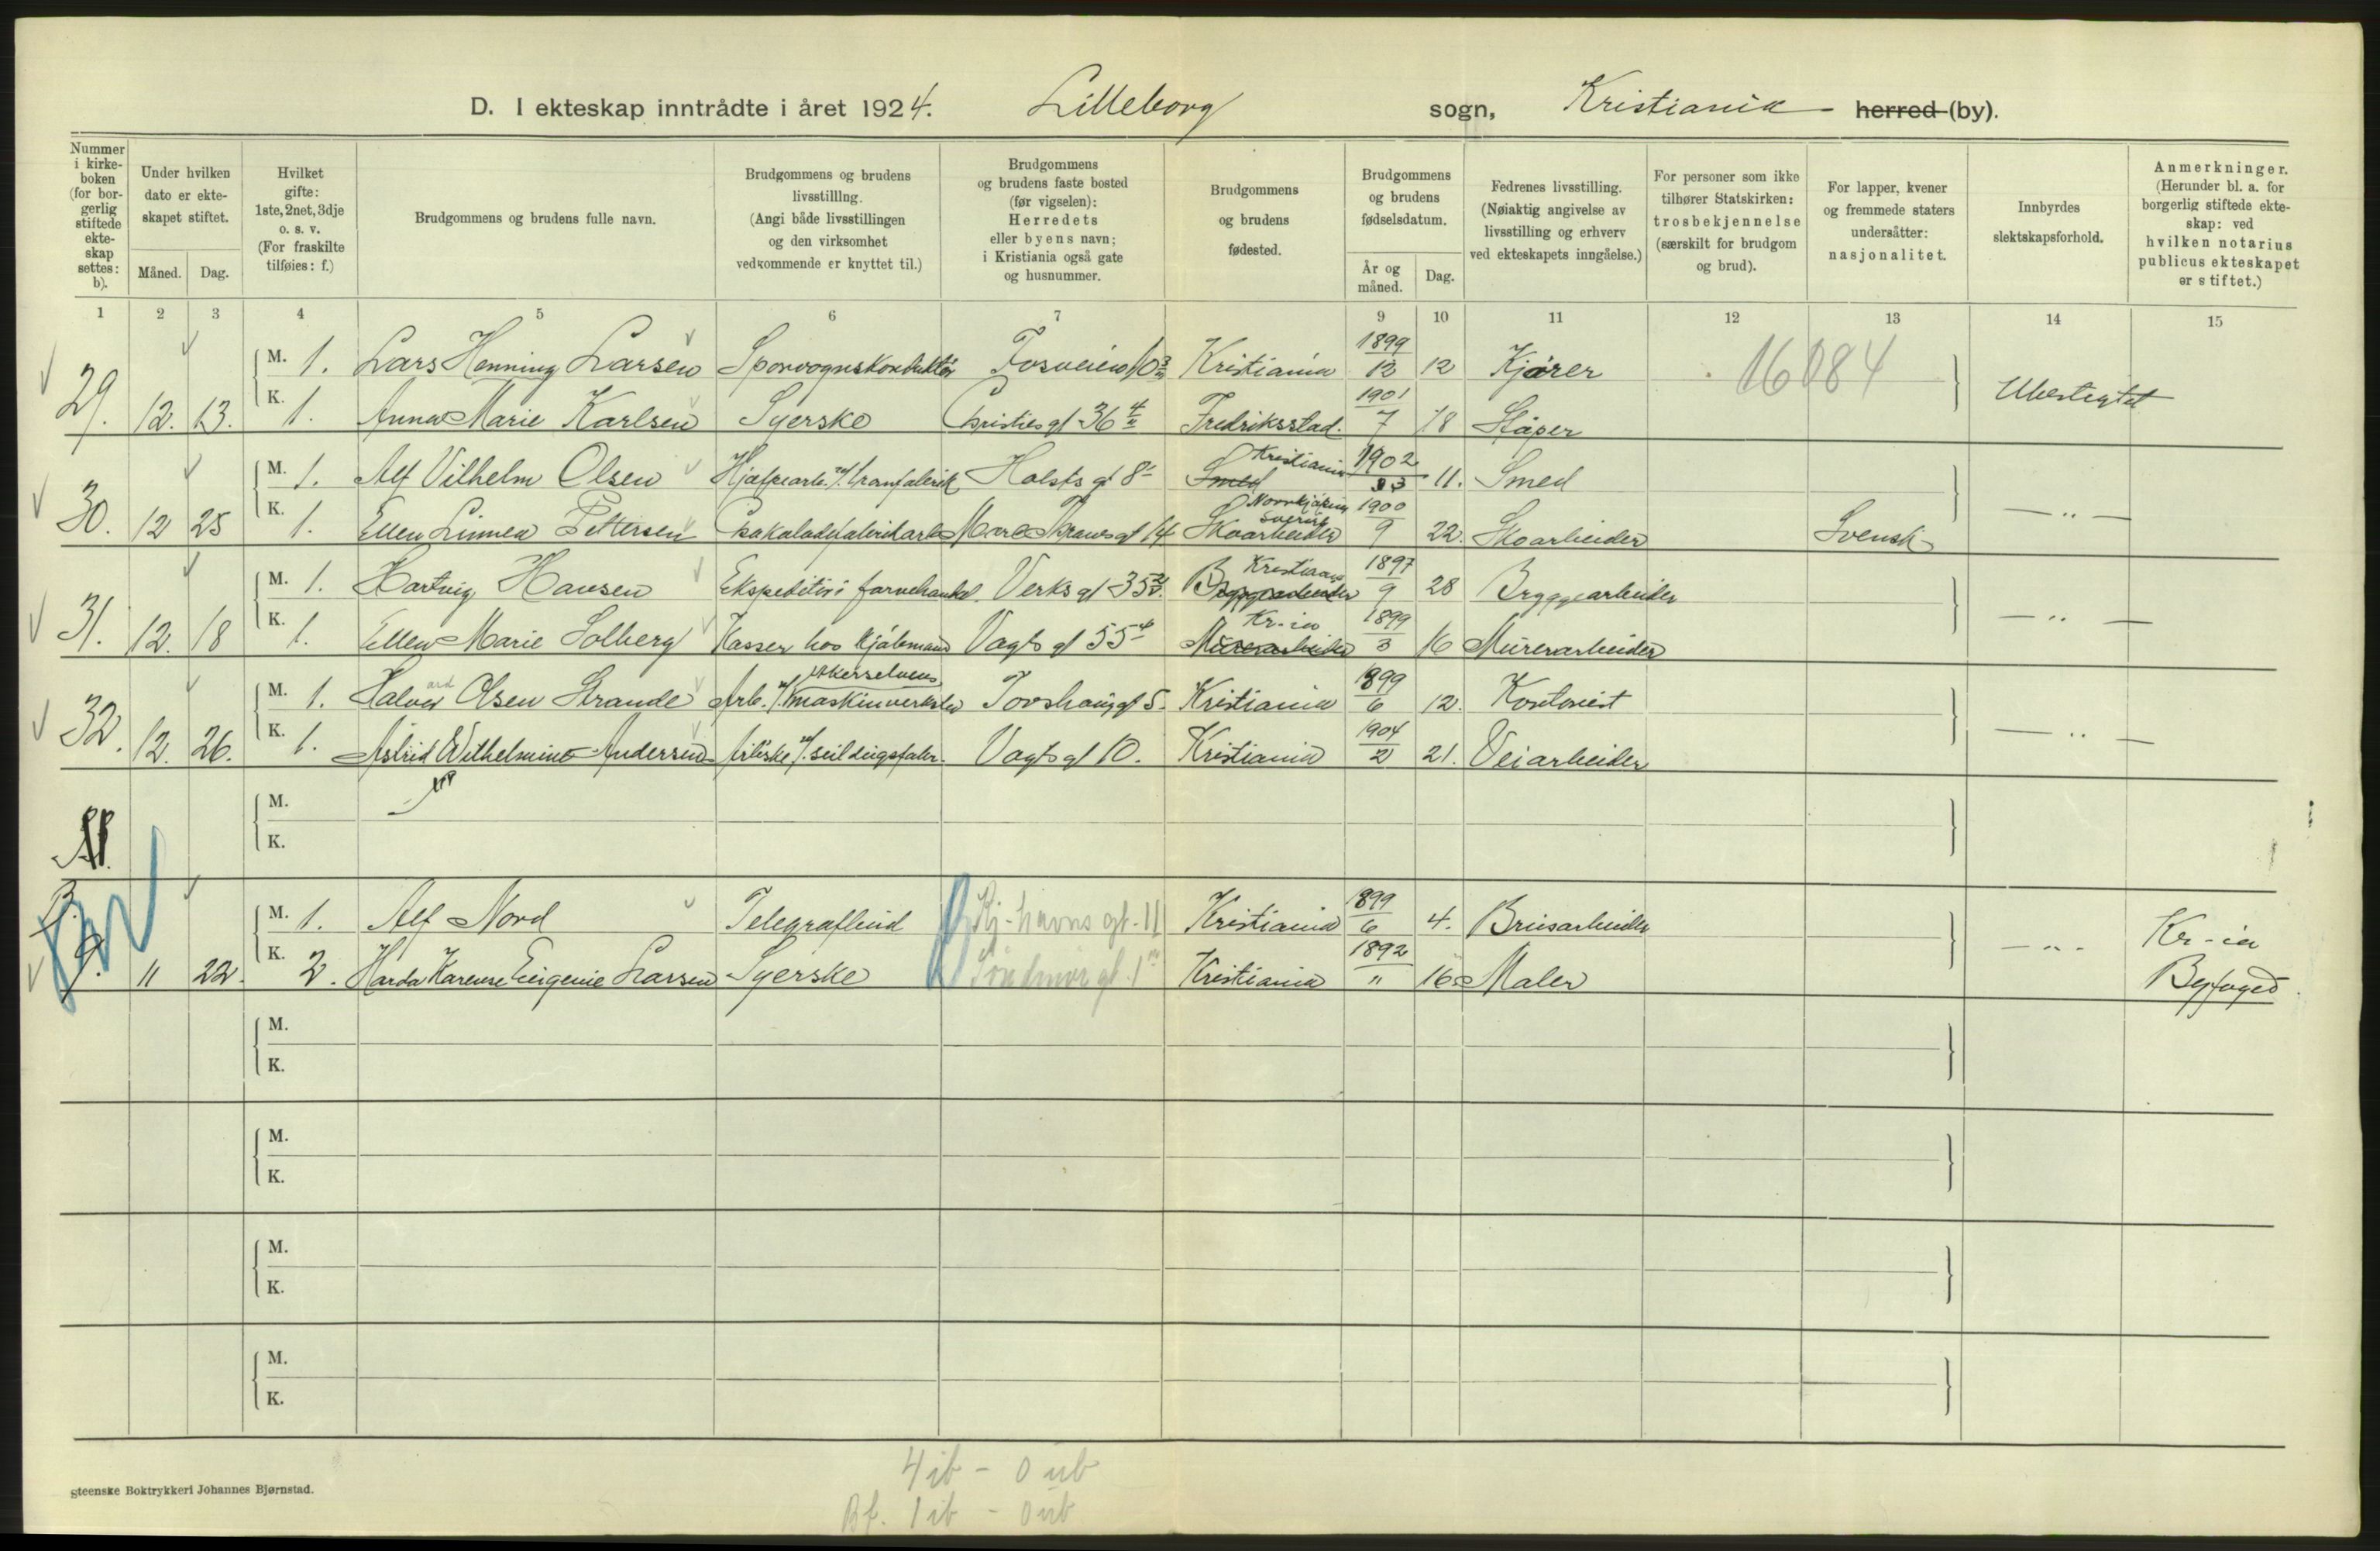 D. I ekteskap inntrådte i året 1924. Lilleborg sogn, Kristiania herred (by).
Nummer i kirke-boken (for bor-gerlig stiftede ekte-skap settes: b).
Under hvilken dato er ekte-skapet stiftet.
Måned. Dag.
Hvilket gifte: 1ste, 2net, 3dje o. s. v. (For fraskilte tilføies: f.)
Brudgommens og brudens fulle navn.
Brudgommens og brudens livsstilllng. (Angi både livsstillingen og den virksomhet vedkommende er knyttet til.)
Brudgommens og brudens faste bosted (før vigselen): Herredets eller byens navn; i Kristiania også gate og husnummer.
Brudgommens og brudens fødested.
Brudgommens og brudens fødselsdatum.
År og måned. Dag.
Fedrenes livsstilling. (Nøiaktig angivelse av livsstilling og erhverv ved ekteskapets inngåelse.)
For personer som ikke tilhører Statskirken: trosbekjennelse (særskilt for brudgom og brud).
For lapper, kvener og fremmede staters undersåtter: nasjonalitet.
Innbyrdes slektskapsforhold.
Anmerkninger. (Herunder bl. a. for borgerlig stiftede ekte-skap: ved hvilken notarius publicus ekteskapet er stiftet.)
1 2 3 4 5 6 7 9 10 11 12 13 14 15
29. 12. 13. M. 1. Lars Henning Larsen Sporvognskonduktör Fosveien 10 3/ Kristiania 1899 12 12 Kjører 16084 Ubeslegtet
K. 1. Anna Marie Karlsen Syerske Christies gt 36 4/ Fredriksstad. 1901 7 18 Slåper
30. 12 25 M. 1. Alf Vilhelm Olsen Hjælpearb. v/. tranfabrik Holsts gt 8 Smed Kristiania 1902 11. Smed — " —
K. 1. Ellen Linnea Pettersen Marc Thranes gt 14 Skoarbeider Norrkjøping Sverige 1900 9 22. Skoarbeider Svensk
31. 12. 18 M. 1. Hartvig Hansen Ekspeditör i farvehandel. Verks gt 35 2/. Bryggearbeider Kristiania 1897 9 28 Bryggearbeider — " —
K. 1. Ellen Marie Solberg Kasser hos kjöbmand Vogts gt 55 4 Murerarbeider Kr-ia 1899 3 16 Murerarbeider
32. 12. 26. M. 1. Halvor Olsen Strande Arb. v/. Akerselvens maskinverksted Torshauggt 5. Kristiania 1899 6 12. Kontorist — " —
K. 1. Astrid Wilhelmine Andersen Arbeiske v/. seildugsfabr. Vogts gt 10. Kristiania 1904 2 21. Veiarbeider
M.
K.
B. 9. 11 22. M. 1. Alf Nord Telegrafbud Kj-havns gt. 11 Kristiania 1899 6 4. Brusarbeider — " - Kr-ia
K. 2. Harda Karense Eugenie Larsen Syerske Söndmör gt. 1 Kristiania 1892 11 16 Maler Byfoged
M.
K.
M.
K.
M.
K.
M.
K.
4 ib - 0 ub
gteenske Boktrykkeri Johannes Bjørnstad.
Bf. 1 ib - 0 ub